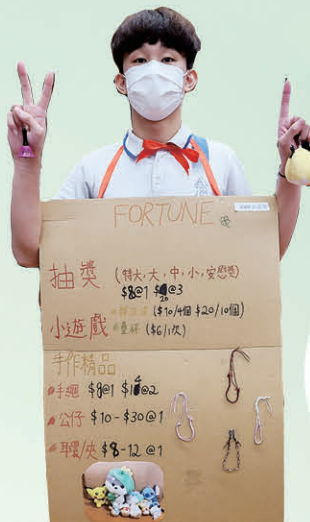 FORTUNE
抽獎 (特大,大,中,小,安慰獎)
$8@1 $20@3
($10/4個 $20/10個)
小遊戲 疊杯 ($6/1次)
手作精品
手繩 $8@1 @2
公仔 $10-$30@1
耳環/夾 $8-12@1